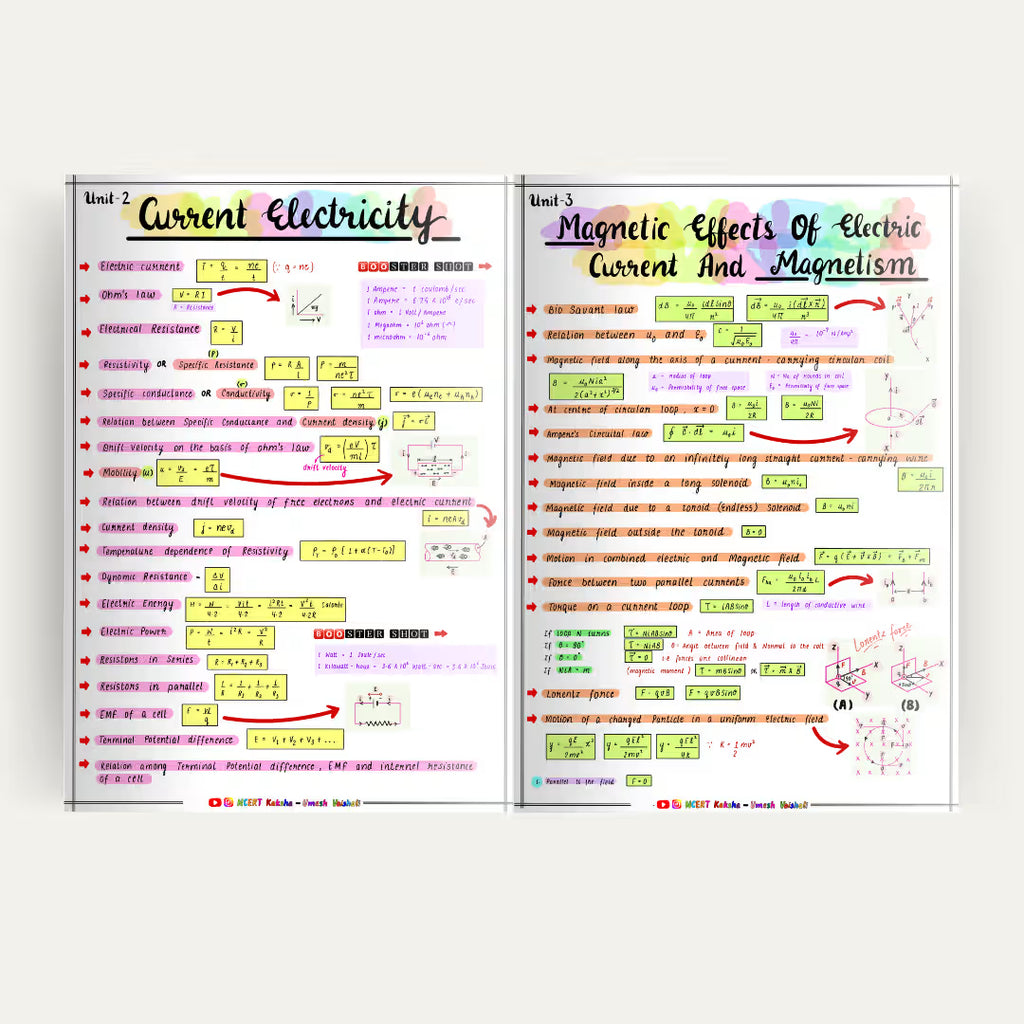 Unit-2
Current Electricity
Electric current I = q/t = ne/t (∵ q = ne)
BOOSTER SHOT
1 Ampere = 1 coulomb/sec
1 ohm = 1 Volt / Ampere
Ohm's law V = RI
R = Resistance
Electrical Resistance R = V/i
Resistivity OR Specific Resistance (ρ) ρ = R A/l ρ = m/ne²τ
Specific conductance OR Conductivity (σ) σ = 1/ρ σ = ne²τ/m σ = e(μₑnₑ + μₕnₕ)
Relation between Specific Conductance and Current density (j)
Drift velocity on the basis of ohm's law
drift velocity
Mobility (u)
Relation between drift velocity of free electrons and electric current
i = neAv_d
Current density j = nev_d
Temperature dependence of Resistivity
Dynamic Resistance = Δv/Δi
Electric Energy
Electric Power P = W/t = i²R = V²/R
BOOSTER SHOT
1 Watt = 1 Joule/sec
Resistors in Series R = R₁+R₂+R₃
Resistors in parallel 1/R = 1/R₁ + 1/R₂ + 1/R₃
EMF of a cell E = W/q
Terminal Potential difference E = V₁ + V₂ + V₃ + ...
Relation among Terminal Potential difference, EMF and internal resistance
of a cell
NCERT Kaksha - Umesh Vaishali
Unit-3
Magnetic Effects Of Electric
Current And Magnetism
Bio Savart law
Relation between μ₀ and ε₀
Magnetic field along the axis of a current - carrying circular coil
a = radius of loop N = No. of rounds in coil
μ₀ = Permeability of free space
At centre of circular loop, x = 0 B = μ₀i/2R B = μ₀Ni/2R
Ampere's Circuital law
Magnetic field due to an infinitely long straight current - carrying wire
B = μ₀i/2πr
Magnetic field inside a long solenoid
Magnetic field due to a toroid (Endless) Solenoid B = μ₀ni
Magnetic field outside the toroid B = 0
Motion in combined electric and Magnetic field
Force between two parallel currents
Torque on a current loop τ = iABsinθ L = length of conductive wire
If loop N turns τ = NiABsinθ A = Area of loop
If θ = 90° τ = NiAB θ = Angle between field & Normal to the coil
If θ = 0° τ = 0 i.e forces are collinear
If NiA = m (magnetic moment) τ = mBsinθ OR τ = m x B
Lorentz force
(A) (B)
Lorentz force F = qvB F = qvBsinθ
Motion of a charged Particle in a uniform Electric field
∵ K = 1/2 mv²
1. Parallel to the field F = 0
NCERT Kaksha - Umesh Vaishali